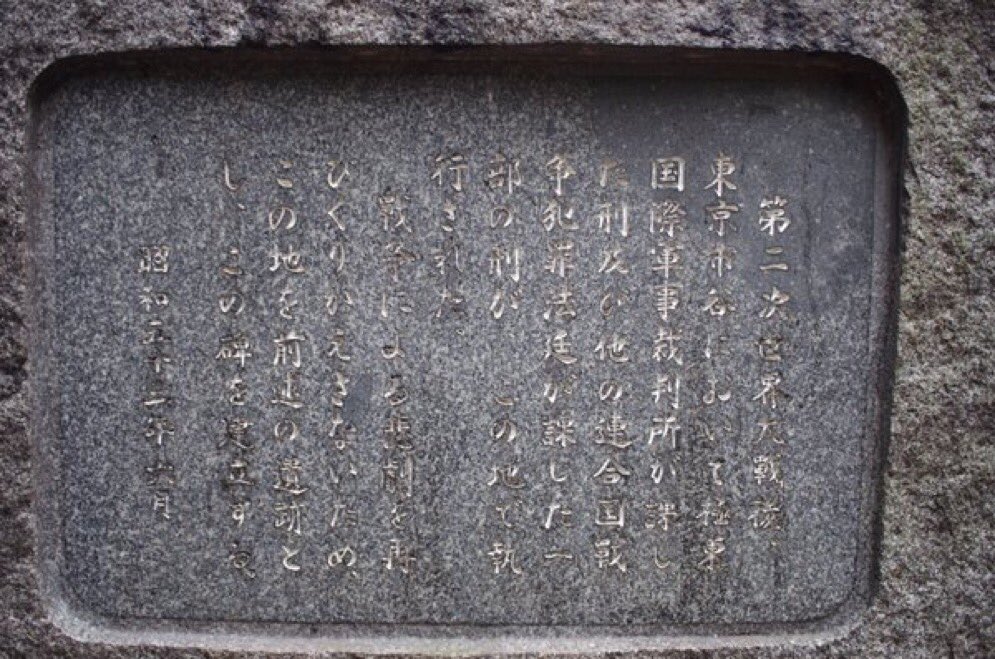 第二次世界大戦後、
東京市谷において極東
国際軍事裁判所が課し
た刑及び他の連合国戦
争犯罪法廷が課した一
部の刑が この地で執
行された。
戦争による悲劇を再
びくりかえさないため、
この地を前述の遺跡と
し、この碑を建立する。
昭和五十三年六月